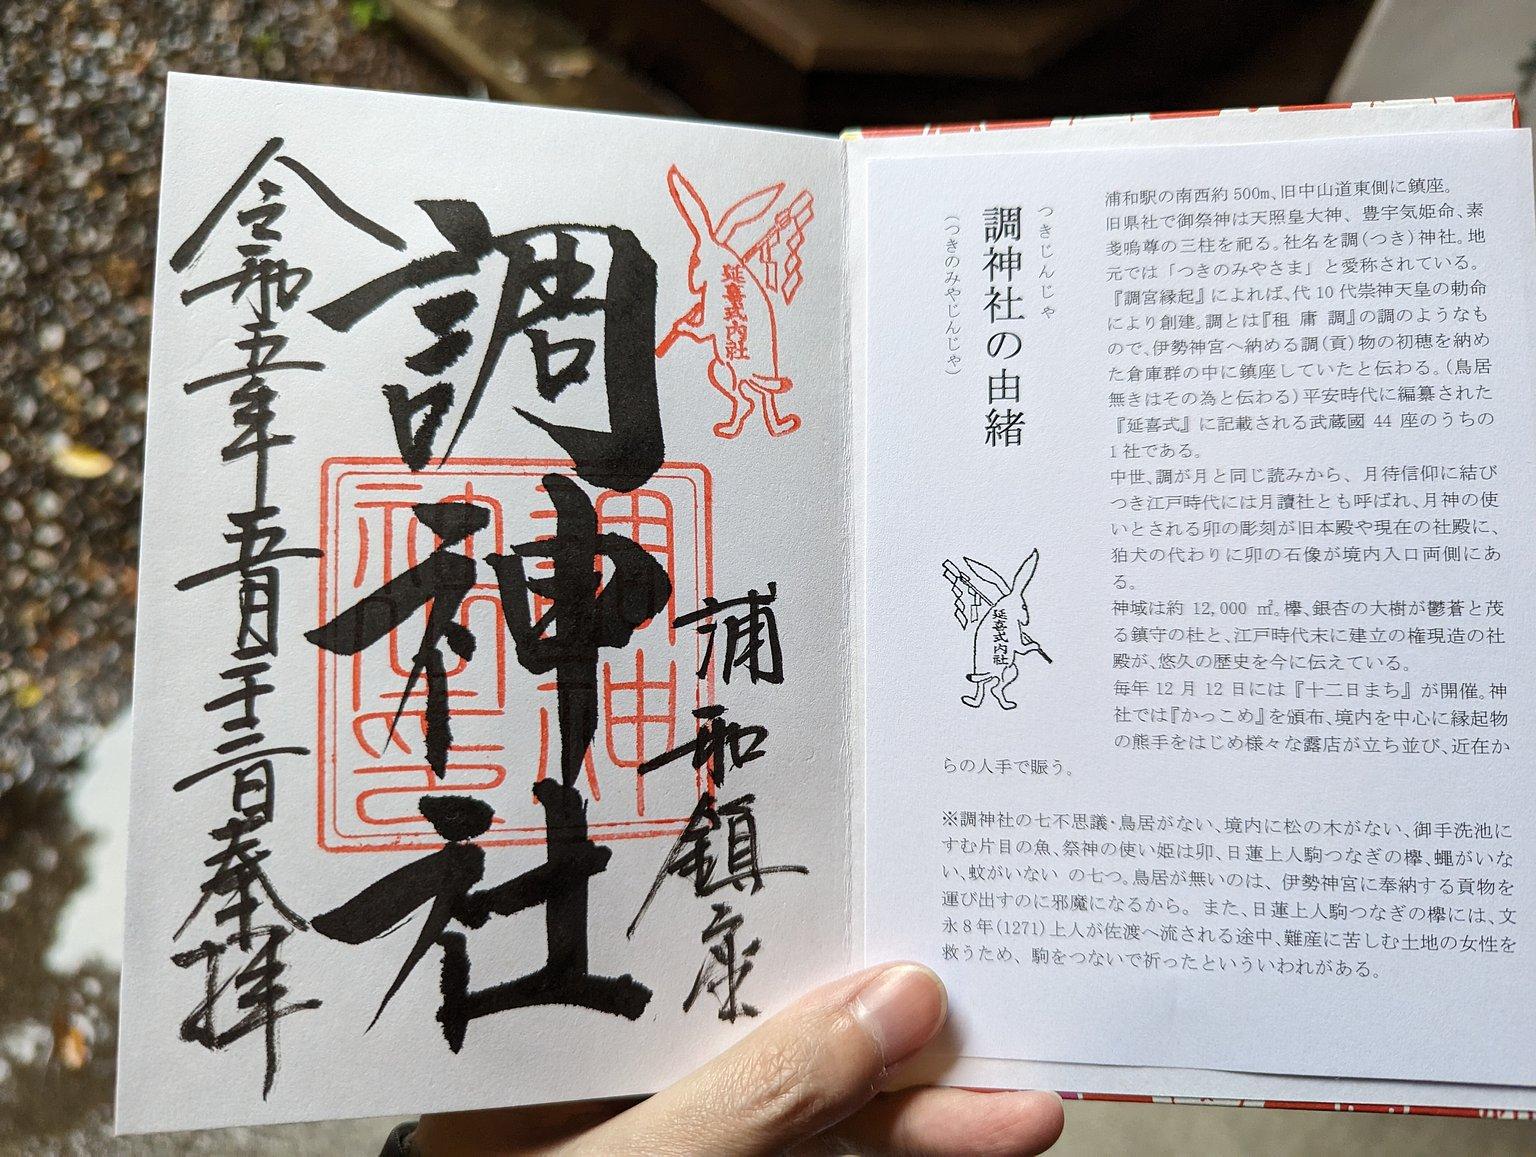 延喜式内社
浦和鎮座
調神社
令和五年五月二十三日奉拝
調神社の由緒
つきじんじゃ
(つきのみやじんじゃ)
延喜式内社
浦和駅の南西約500m、旧中山道東側に鎮座。
旧県社で御祭神は天照皇大神、豊宇気姫命、素
戔嗚尊の三柱を祀る。社名を調(つき)神社。地
元では「つきのみやさま」と愛称されている。
『調宮縁起』によれば、代10代崇神天皇の勅命
により創建。調とは『租 庸 調』の調のようなも
ので、伊勢神宮へ納める調(貢)物の初穂を納め
た倉庫群の中に鎮座していたと伝わる。(鳥居
無きはその為と伝わる)平安時代に編纂された
『延喜式』に記載される武蔵國 44 座のうちの
1社である。
中世、調が月と同じ読みから、月待信仰に結び
つき江戸時代には月讀社とも呼ばれ、月神の使
いとされる卯の彫刻が旧本殿や現在の社殿に、
狛犬の代わりに卯の石像が境内入口両側にあ
る。
神域は約 12,000 ㎡。欅、銀杏の大樹が鬱蒼と茂
る鎮守の杜と、江戸時代末に建立の権現造の社
殿が、悠久の歴史を今に伝えている。
毎年 12 月 12 日には『十二日まち』が開催。神
社では『かっこめ』を頒布、境内を中心に縁起物
の熊手をはじめ様々な露店が立ち並び、近在か
らの人手で賑う。
※調神社の七不思議・鳥居がない、境内に松の木がない、御手洗池に
すむ片目の魚、祭神の使い姫は卯、日蓮上人駒つなぎの欅、蠅がいな
い、蚊がいない の七つ。鳥居が無いのは、伊勢神宮に奉納する貢物を
運び出すのに邪魔になるから。また、日蓮上人駒つなぎの欅には、文
永8年(1271)上人が佐渡へ流される途中、難産に苦しむ土地の女性を
救うため、駒をつないで祈ったといういわれがある。